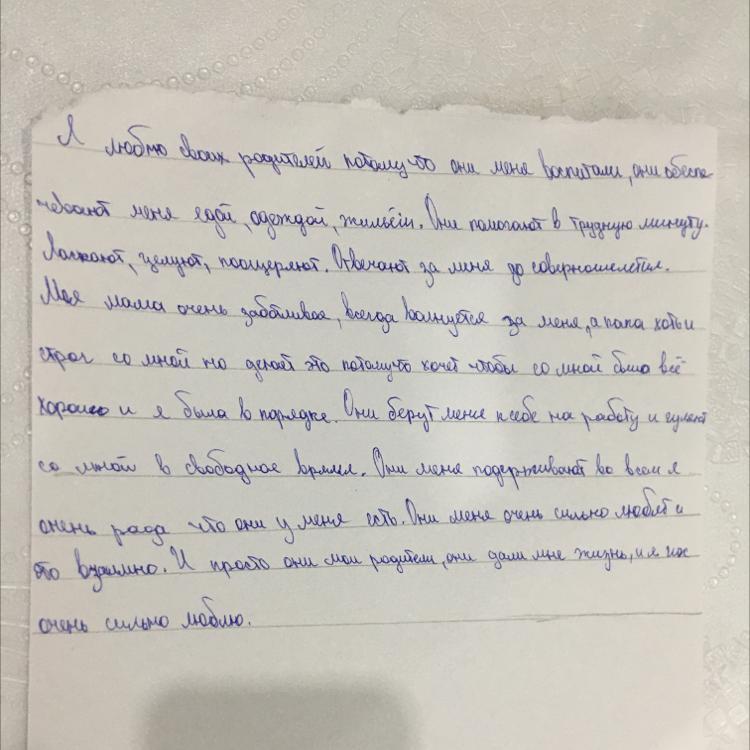 Я люблю своих родителей потому что они меня воспитали, они обеспе-
чевают меня едой, одеждой, жильём. Они помогают в трудную минуту.
Ласкают, целуют, поощеряют. Отвечают за меня до совершеннолетия.
Моя мама очень заботливая, всегда волнуется за меня, а папа хоть и
строг со мной но делает это потомучто хочет чтобы со мной было всё
хорошо и я была в порядке. Они берут меня к себе на работу и гуляют
со мной в свободное время. Они меня подерживают во всем я
очень рада что они у меня есть. Они меня очень сильно любят и
это взаимно. И просто они мои родители, они дали мне жизнь, и я их
очень сильно люблю.